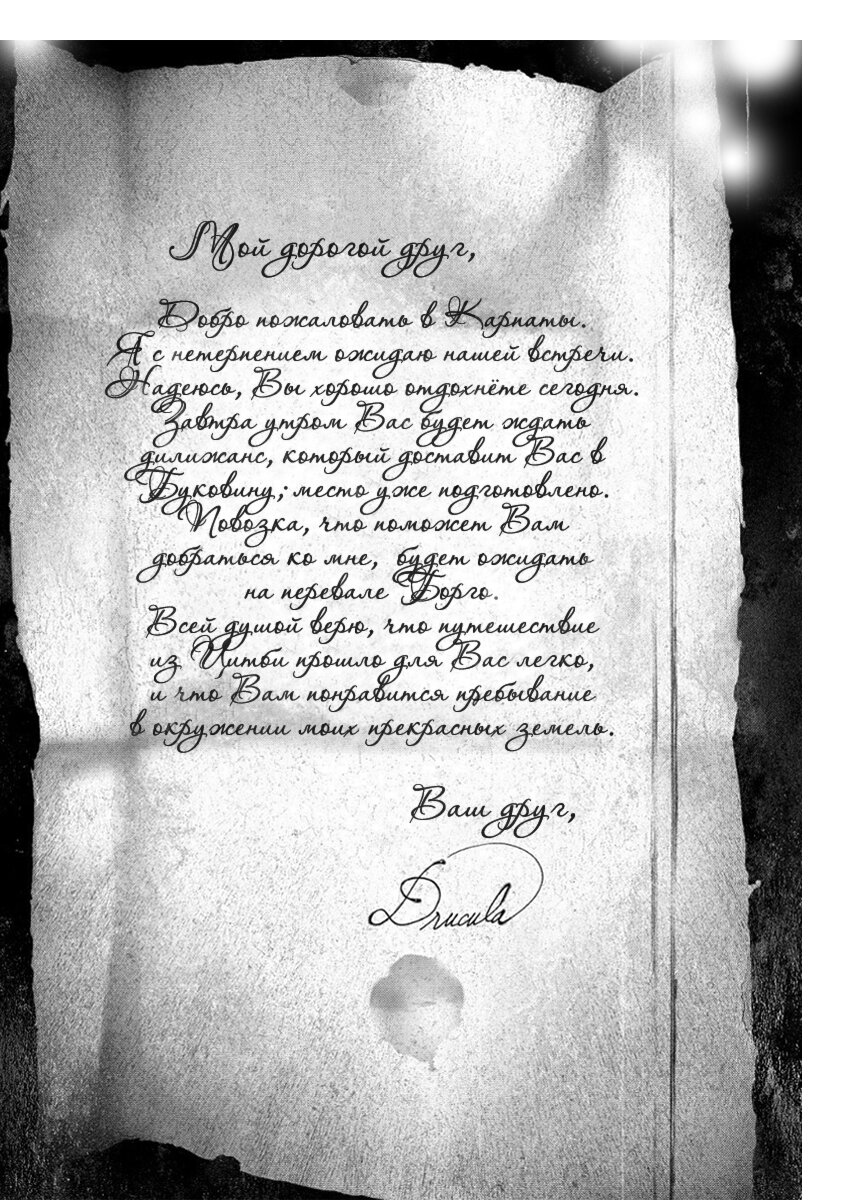 Мой дорогой друг,
Добро пожаловать в Карпаты.
Я с нетерпением ожидаю нашей встречи.
Надеюсь, Вы хорошо отдохнёте сегодня.
Завтра утром Вас будет ждать
дилижанс, который доставит Вас в
Буковину; место уже подготовлено.
Повозка, что поможет Вам
добраться ко мне, будет ожидать
на перевале Борго.
Всей душой верю, что путешествие
из Уитби прошло для Вас легко,
и что Вам понравится пребывание
в окружении моих прекрасных земель.
Ваш друг,
Dracula